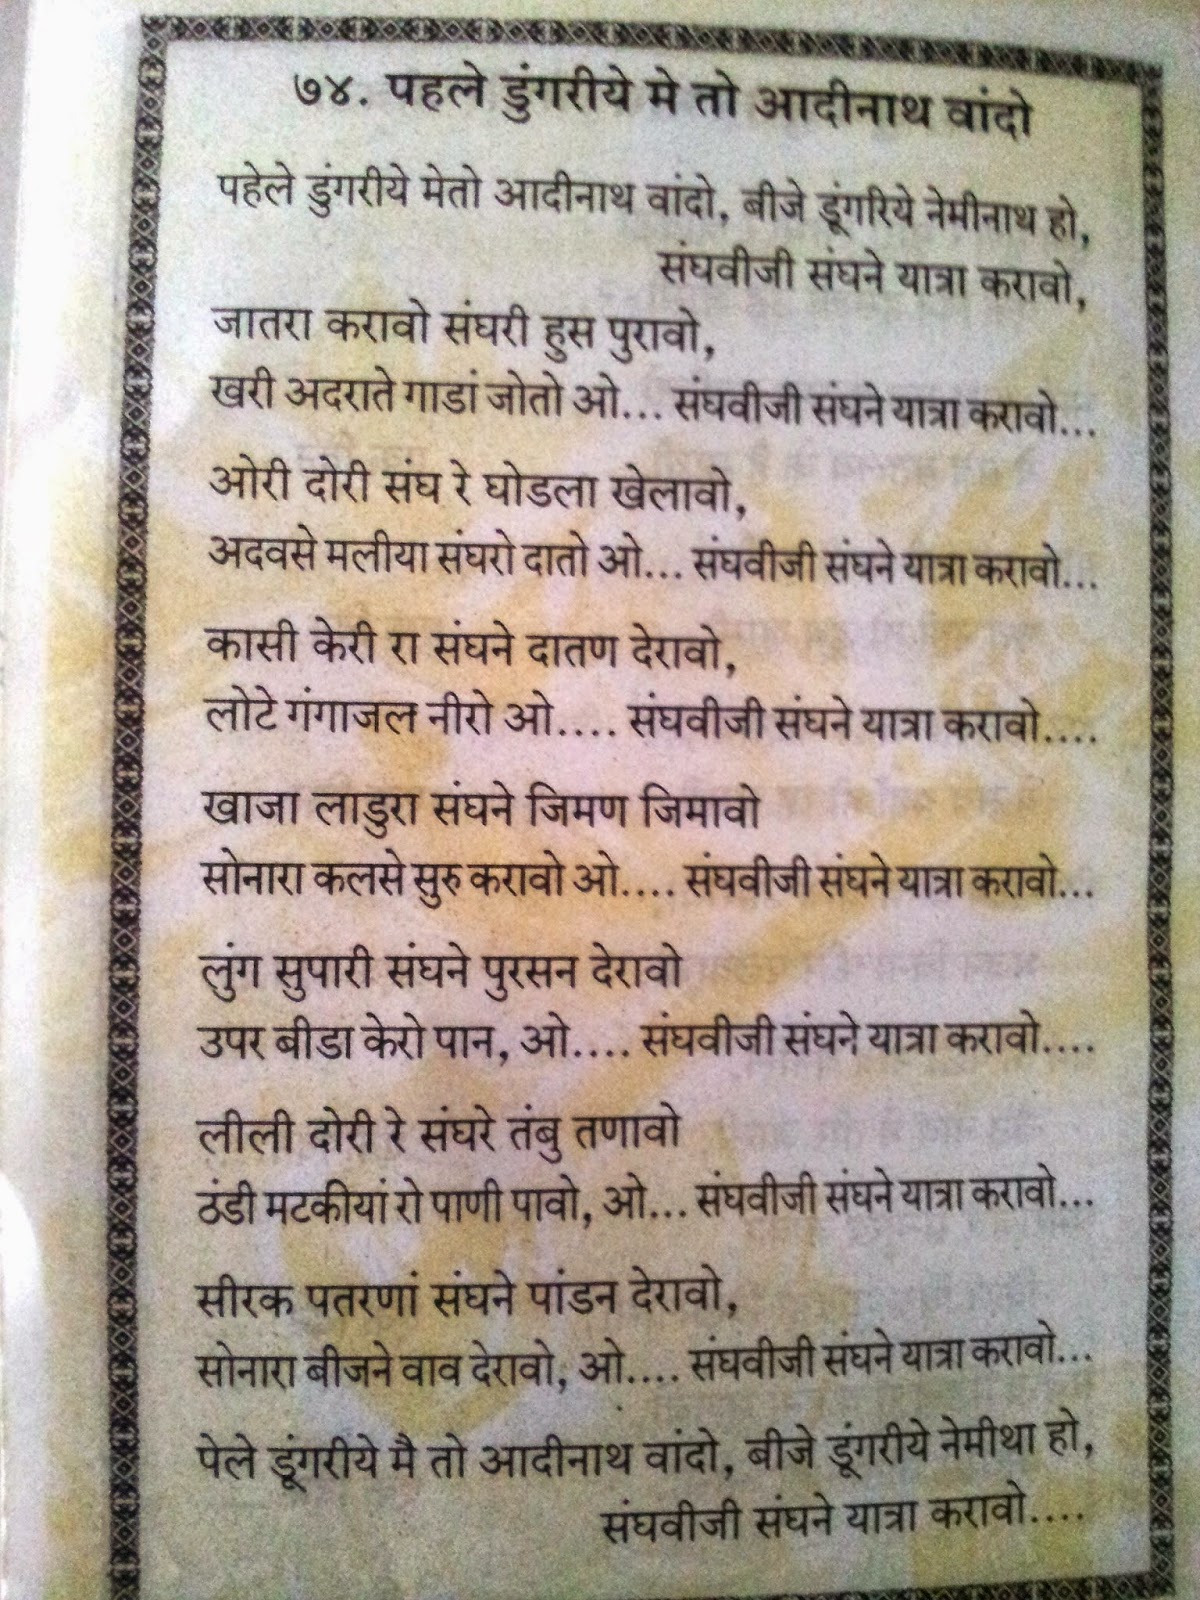 ७४. पहले डुंगरीये मे तो आदीनाथ वांदो
पहेले डुंगरीये मेतो आदीनाथ वांदो, बीजे डूंगरिये नेमीनाथ हो,
संघवीजी संघने यात्रा करावो,
जातरा करावो संघरी हुस पुरावो,
खरी अदराते गाडां जोतो ओ... संघवीजी संघने यात्रा करावो...
ओरी दोरी संघ रे घोडला खेलावो,
अदवसे मलीया संघरो दातो ओ... संघवीजी संघने यात्रा करावो...
कासी केरी रा संघने दातण देरावो,
लोटे गंगाजल नीरो ओ.... संघवीजी संघने यात्रा करावो....
खाजा लाडुरा संघने जिमण जिमावो
सोनारा कलसे सुरु करावो ओ.... संघवीजी संघने यात्रा करावो...
लुंग सुपारी संघने पुरसन देरावो
उपर बीडा केरो पान, ओ.... संघवीजी संघने यात्रा करावो....
लीली दोरी रे संघरे तंबु तणावो
ठंडी मटकीयां रो पाणी पावो, ओ... संघवीजी संघने यात्रा करावो...
सीरक पतरणां संघने पांडन देरावो,
सोनारा बीजने वाव देरावो, ओ.... संघवीजी संघने यात्रा करावो...
पेले डूंगरीये मै तो आदीनाथ वांदो, बीजे डूंगरीये नेमीथा हो,
संघवीजी संघने यात्रा करावो....